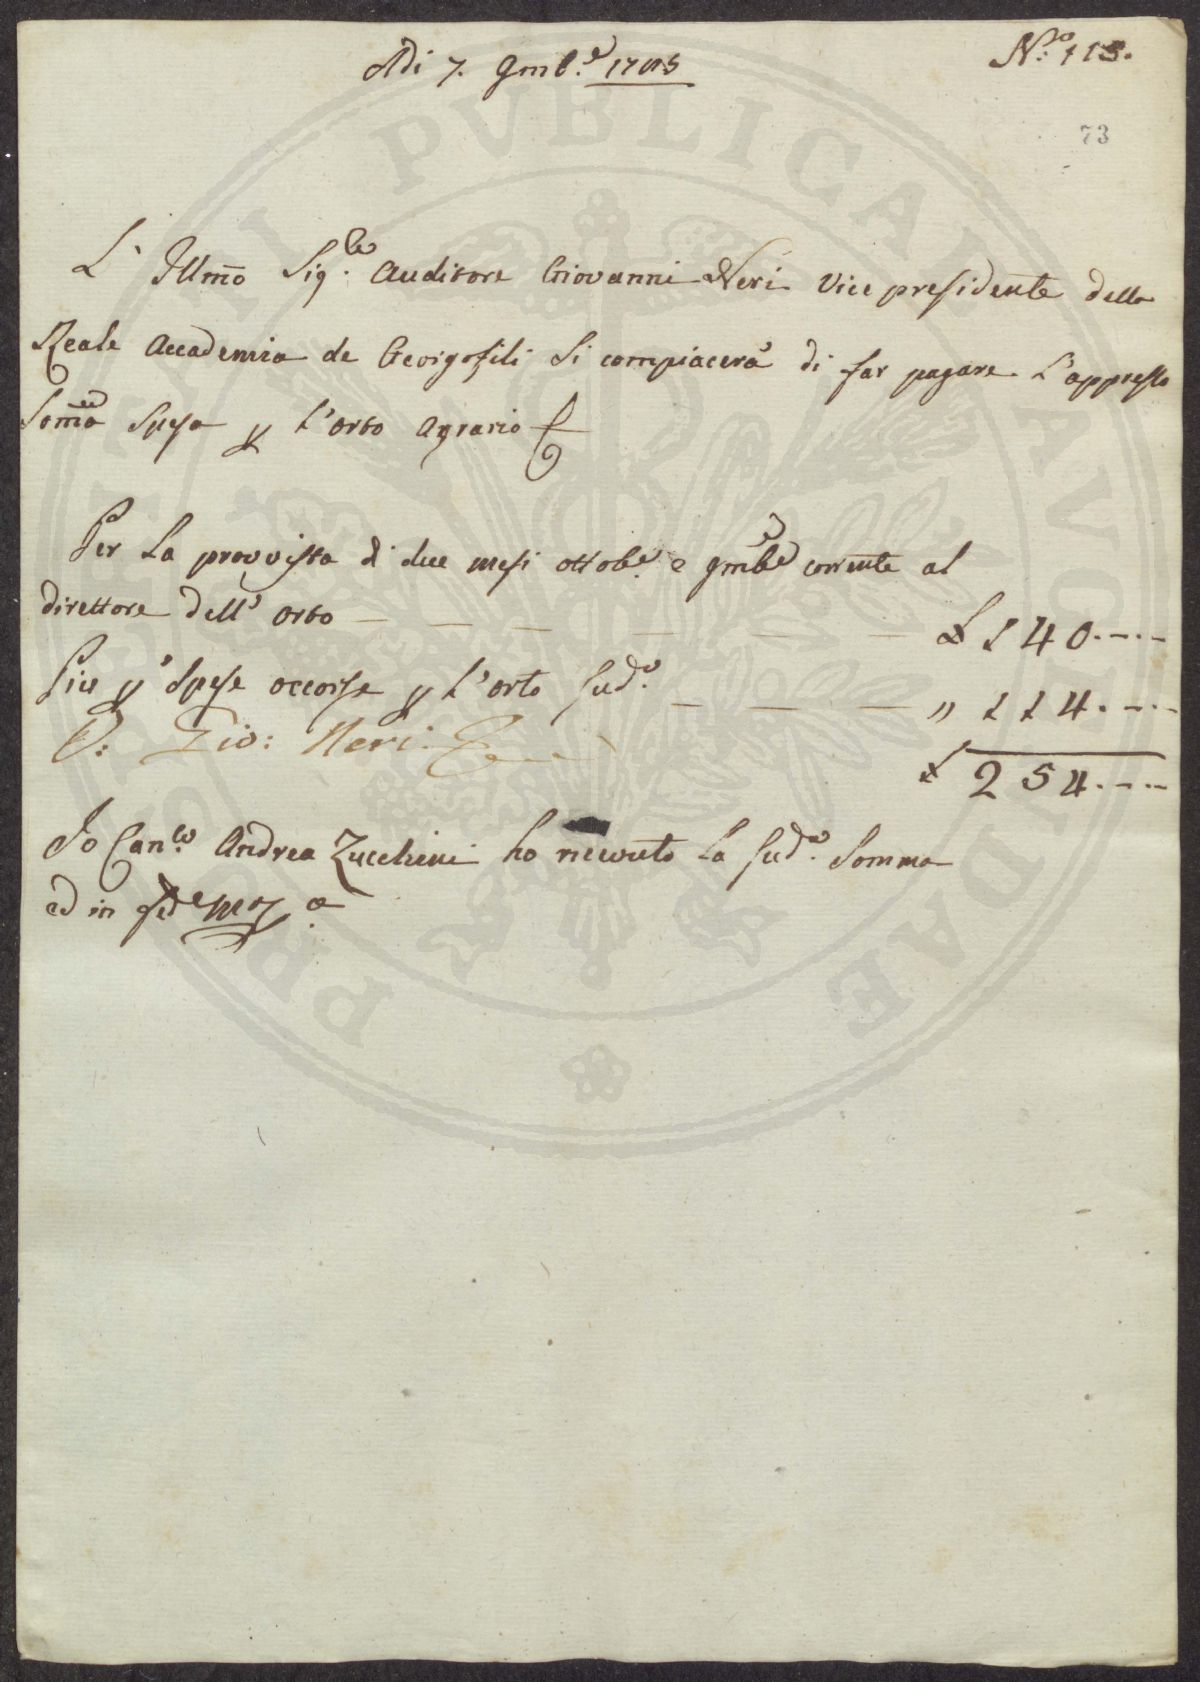 N.º 113.
Adi 7. 9mb.e 1785
73
L' Illmo Sig.re Auditore Giovanni Neri Vice presidente della
Reale Accademia de Georgofili Si compiacerà di far pagare L'appresso
Somma Spesa p L'orto Agrario
Per La provvista di due mesi ottob.e e 9mbe corrente al
direttore dell' orto — — — — — — £ 140.---
Piu p Spese occorse p L'orto Sud.o — — — " 114.---
V: Gio: Neri
£ 254.---
Io Can.co Andrea Zucchini ho ricevuto La Sud.a Somma
ed in fede
PUBLICAE